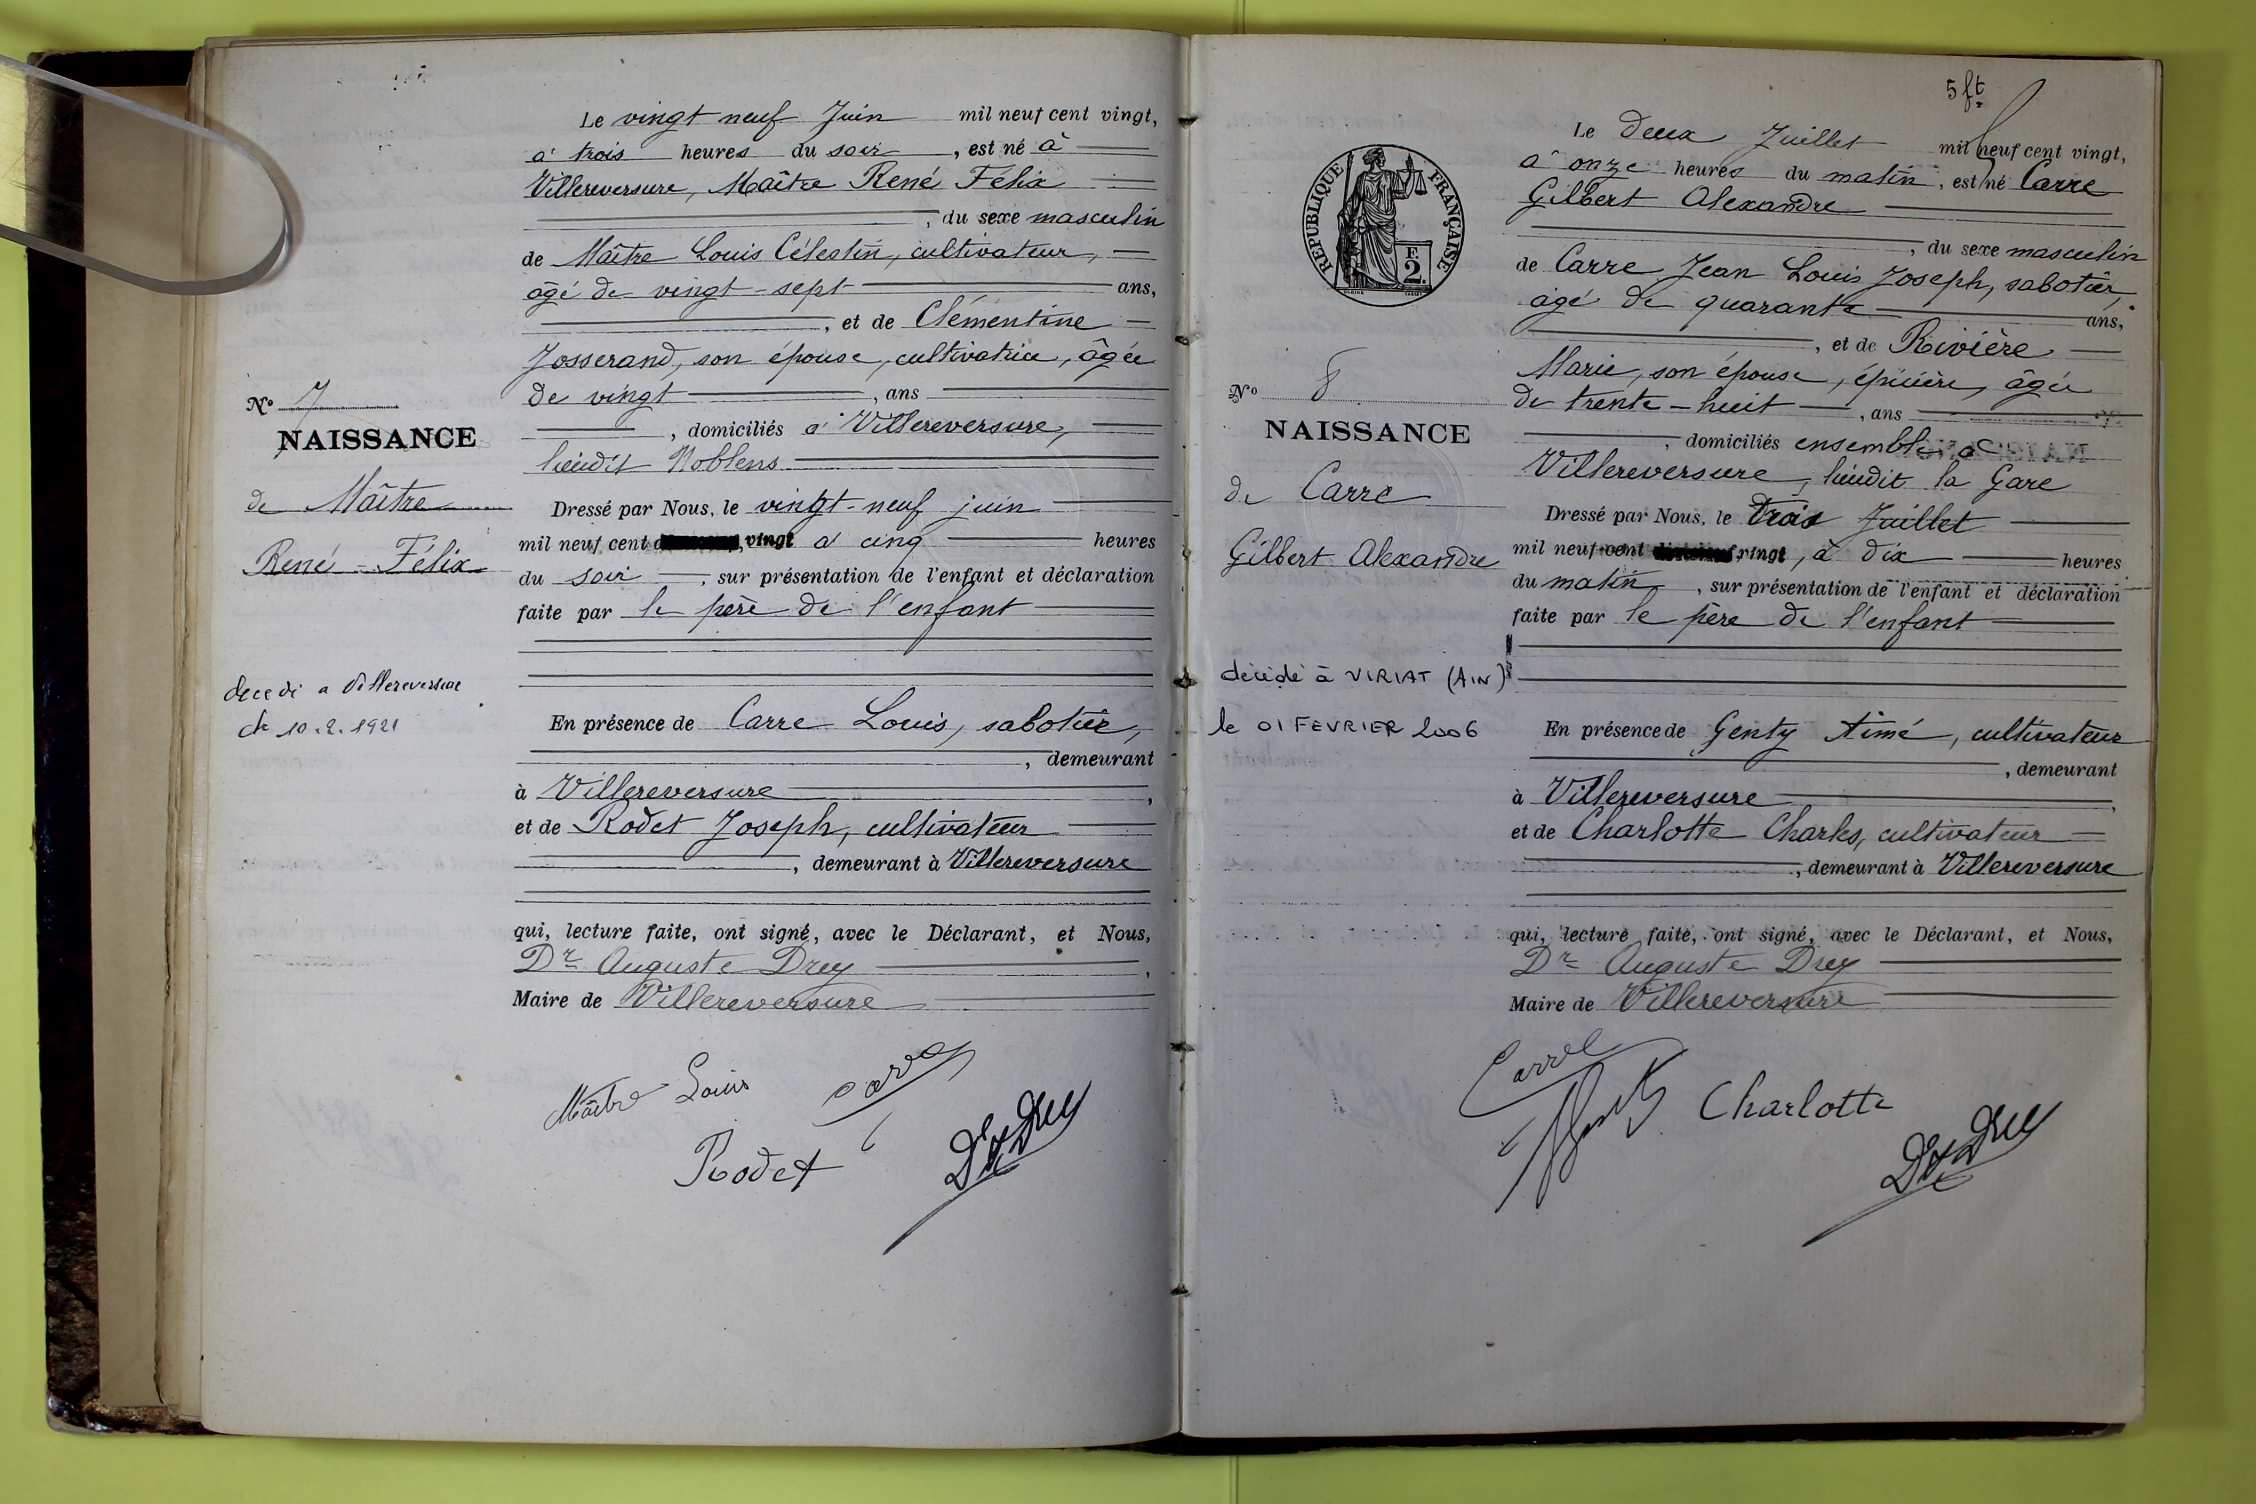 Le vingt neuf Juin mil neuf cent vingt,
à trois heures du soir, est né à
Villereversure, Maître René Félix
, du sexe masculin
de Maître Louis Célestin, cultivateur,
âgé de vingt-sept ans,
, et de Clémentine
Josserand, son épouse, cultivatrice, âgée
de vingt, ans
, domiciliés à Villereversure,
lieudit Noblens
No 7
NAISSANCE
de Maître
René-Félix
Dressé par Nous, le vingt-neuf juin
mil neuf cent vingt à cinq heures
du soir, sur présentation de l'enfant et déclaration
faite par le père de l'enfant
decedé a Villereversure
le 10.2.1921
En présence de Carre Louis, sabotier,
, demeurant
à Villereversure,
et de Rodet Joseph, cultivateur
, demeurant à Villereversure
qui, lecture faite, ont signé, avec le Déclarant, et Nous,
Dr Auguste Drey,
Maire de Villereversure
Maître Louis
Carre
Rodet
Dr Drey
5 ft
RÉPUBLIQUE FRANÇAISE
F.
2.
Le deux Juillet mil neuf cent vingt,
à onze heures du matin, est né Carre
Gilbert Alexandre
, du sexe masculin
de Carre Jean Louis Joseph, sabotier,
âgé de quarante ans,
, et de Rivière
Marie, son épouse, épicière, âgée
de trente-huit, ans
, domiciliés ensemble à
Villereversure, lieudit la Gare
No 8
NAISSANCE
de Carre
Gilbert Alexandre
Dressé par Nous, le trois Juillet
mil neuf cent vingt, à dix heures
du matin, sur présentation de l'enfant et déclaration
faite par le père de l'enfant
décédé à VIRIAT (AIN)
le 01 FEVRIER 2006
En présence de Genty Aimé, cultivateur
, demeurant
à Villereversure,
et de Charlotte Charles, cultivateur
, demeurant à Villereversure
qui, lecture faite, ont signé, avec le Déclarant, et Nous,
Dr Auguste Drey
Maire de Villereversure
Carre
Charlotte
Dr Drey